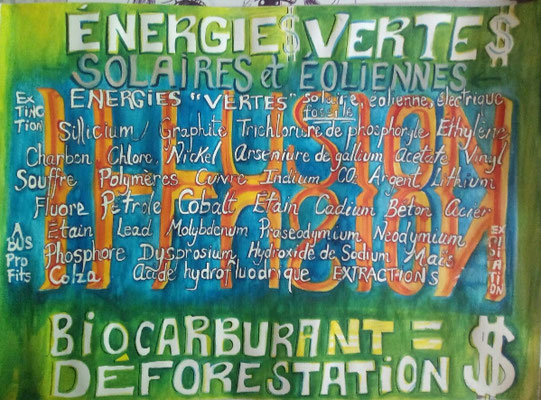 ÉNERGIE$ VERTE$
SOLAIRES et ÉOLIENNES
ÉNERGIES "VERTES" solaire, éolienne, électrique
fossile
ExTINCTion
Sillicium/ Graphite Trichlorure de phosphoryle Éthylène
Charbon Chlore, Nickel Arseniure de gallium Acétate Vinyl
Souffre Polymères Cuivre Indium CO₂ Argent Lithium
Fluore Pétrole Cobalt Etain Cadium Béton Acier
Étain Lead Molybdenum Praseodymium Neodymium
Phosphore Dysprosium Hydroxide de Sodium Maïs
Colza Acide hydrofluodrique EXTRACTIONS
AbUS ProFits
ILLUSION
BIOCARBURANT =
DÉFORESTATION $